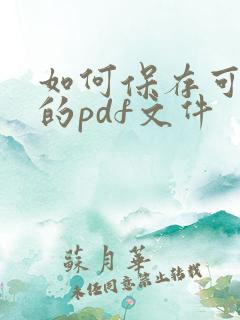 如何保存可
的pdf文件
蘇月華
未经同意禁止转载